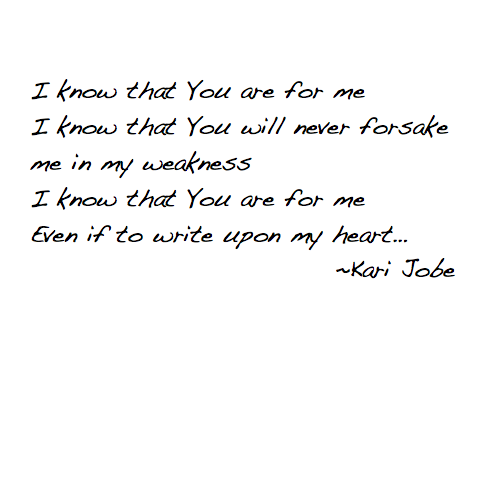 I know that You are for me
I know that You will never forsake
me in my weakness
I know that You are for me
Even if to write upon my heart...
~Kari Jobe